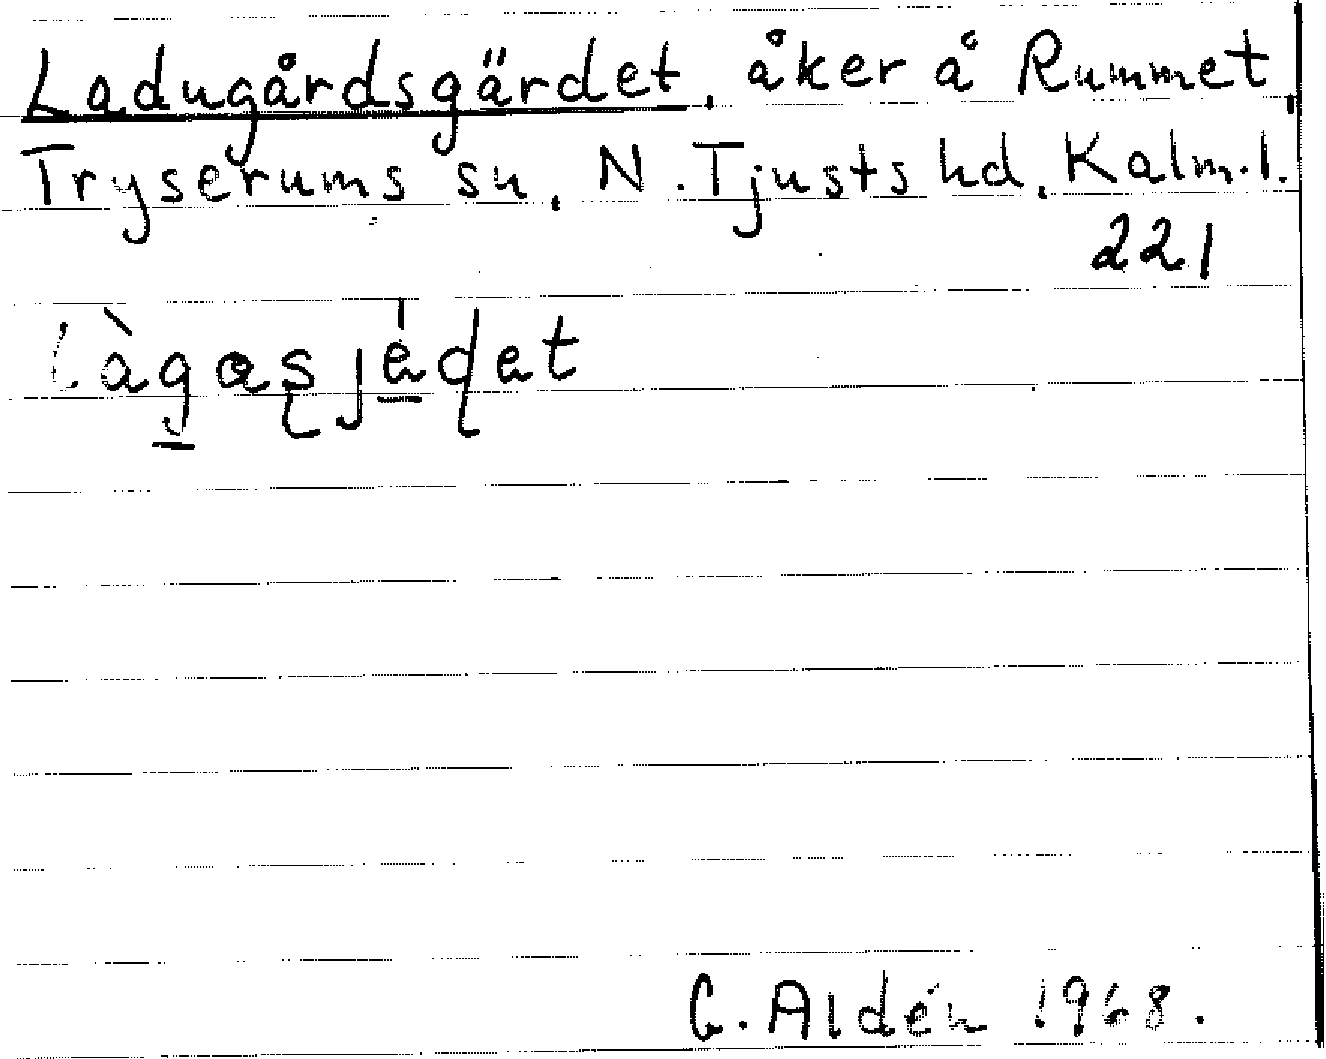 Ladugårdsgärdet, åker å Rummet,
Tryserums sn, N. Tjusts hd, Kalm.l.
221
làgaşjèɖet
G. Aldén 1968.